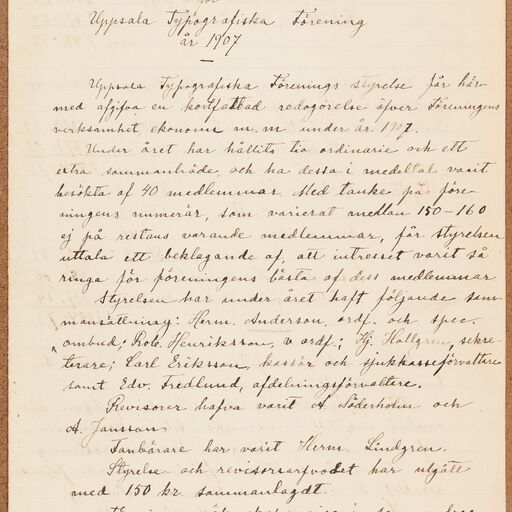 Uppsala Typografiska Förening
år 1907
Uppsala Typografiska Förenings styrelse får här-
med afgifva en kortfattad redogörelse öfver Föreningens
verksamhet ekonomi m.m under år 1907.
Under året har hållits tio ordinarie och ett
extra sammanträde, och ha dessa i medeltal varit
besökta af 40 medlemmar. Med tanke på före-
ningens numerär, som varierat mellan 150-160
ej på restans varande medlemmar, får styrelsen
uttala ett beklagande af, att intresset varit så
ringa för föreningens bästa af dess medlemmar
Styrelsen har under året haft följande sam-
mansättning: Herm. Anderson, ordf. och spec.
ombud; Rob. Henriksson, v ordf; Hj. Hallgren, sekre-
terare; Carl Eriksson, kassör och sjukkasseförvaltare
samt Edv. Fredlund, afdelningsförvaltare.
Revisorer hafva varit A. Söderholm och
A. Jansson
Fanbärare har varit Herm. Lindgren.
Styrelse och revisorsarfvodet har utgått
med 150 kr. sammanlagdt.